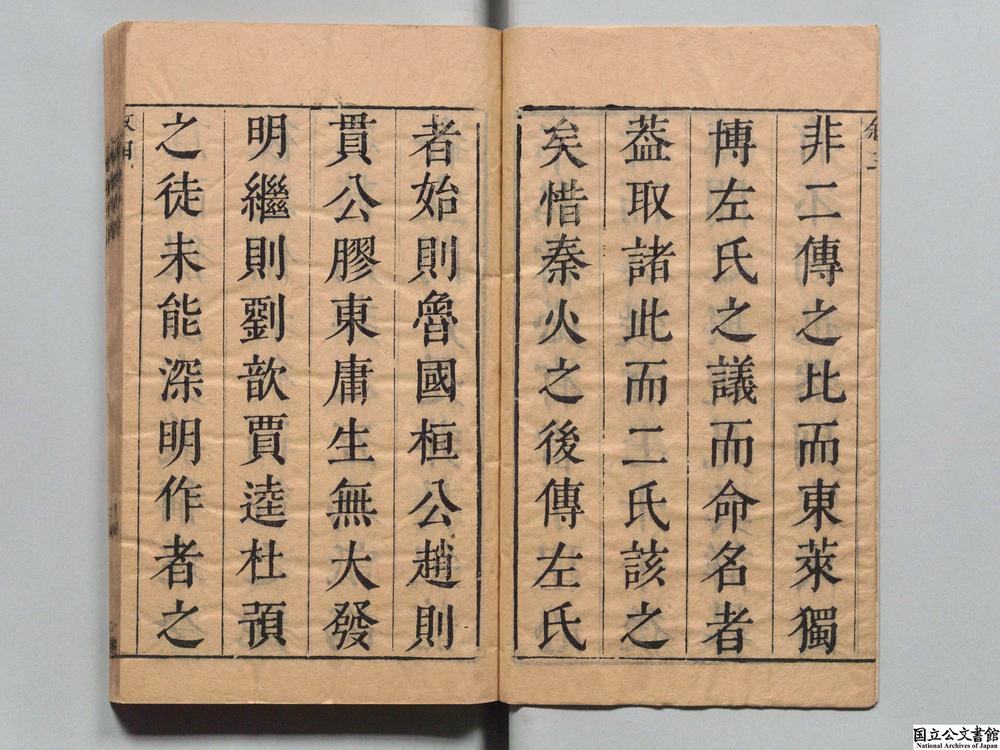 非二傳之比而東萊獨
博左氏之議而命名者
葢取諸此而二氏該之
矣惜秦火之後傳左氏
者始則魯國桓公趙則
貫公膠東庸生無大發
明繼則劉歆賈逵杜預
之徒未能深明作者之
国立公文書館
National Archives of Japan